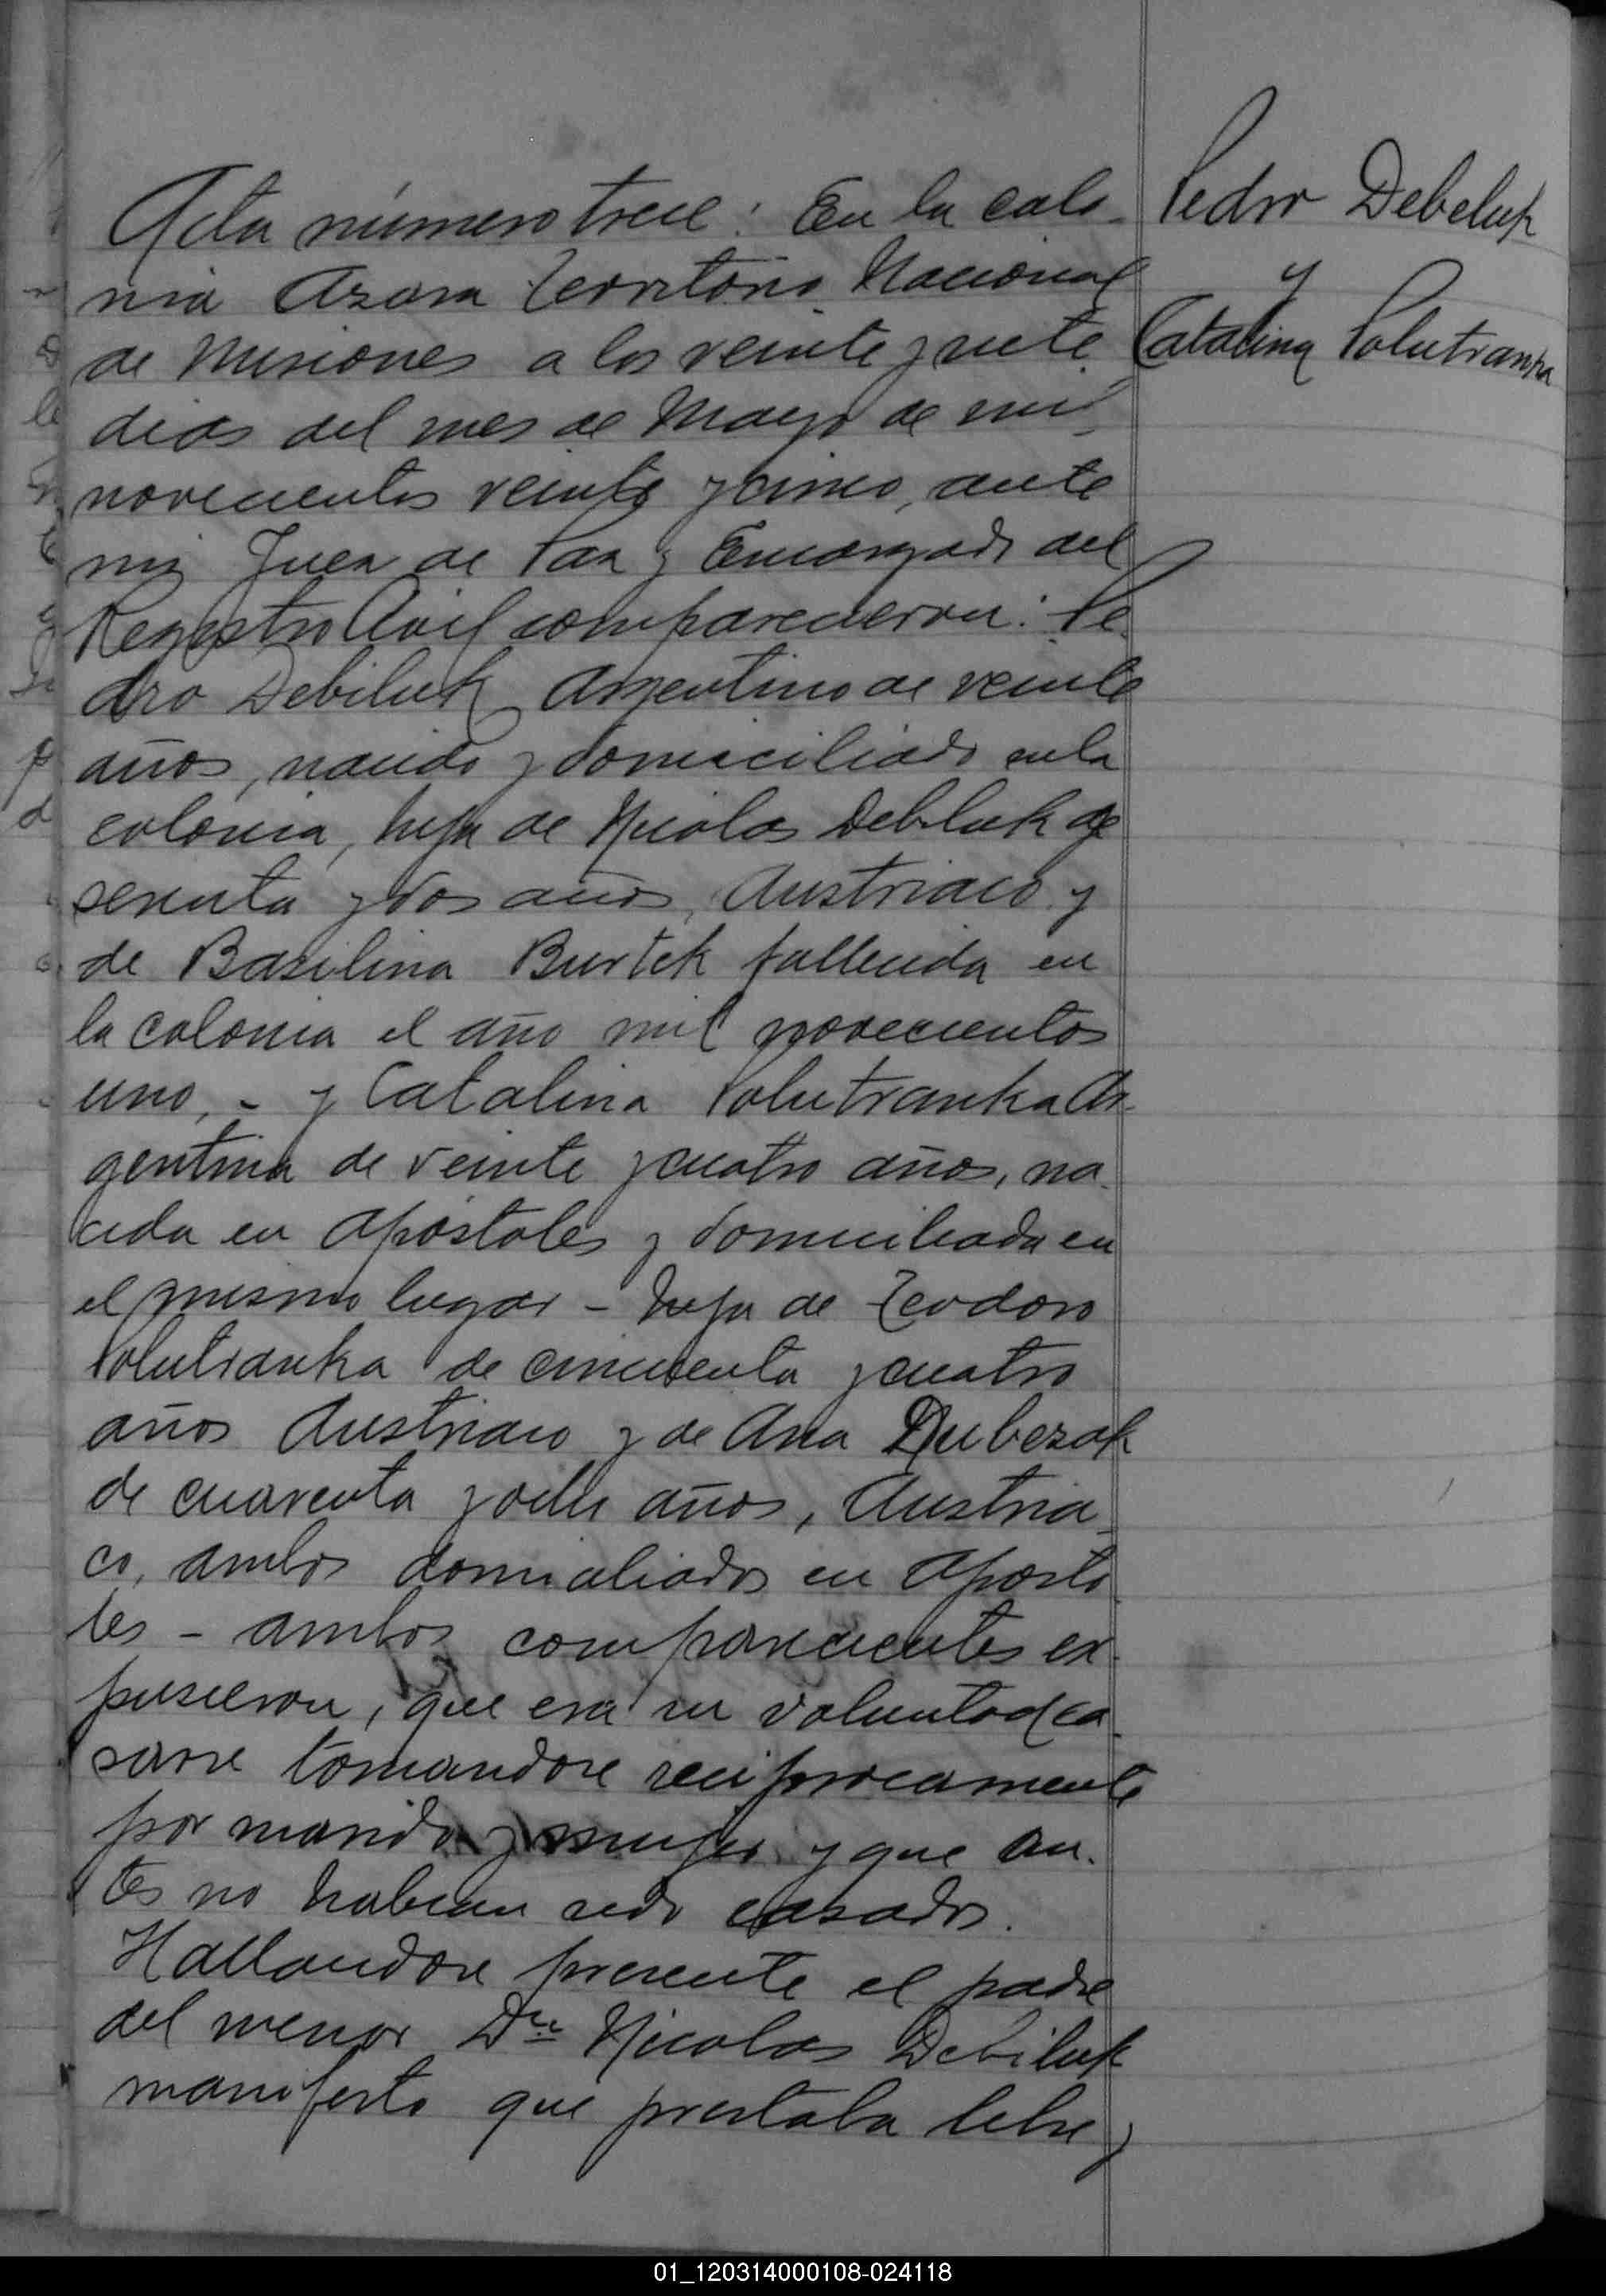 Acta número trece: En la colo-
nia Azara Territorio Nacional
de Misiones a los veinte y siete
dias del mes de Mayo de mil
novecientos veinte y cinco, ante
mi Juez de Paz y Encargado del
Registro Civil comparecieron: Pe-
dro Debiluk Argentino de veinte
años, nacido y domiciliado en la
colonia, hijo de Nicolas Debiluk de
sesenta y dos años, Austriaco y
de Basilina Burtek fallecida en
la colonia el año mil novecientos
uno, - y Catalina Polutranka Ar-
gentina de veinte y cuatro años, na-
cida en Apóstoles y domiciliada en
el mismo lugar - hija de Teodoro
Polutranka de cincuenta y cuatro
años Austriaco y de Ana Dubezak
de cuarenta y ocho años, Austria-
co, ambos domiciliados en Aposto
les - ambos comparecientes ex-
pusieron, que era su voluntad ca-
sarse tomandose reciprocamente
por marido y mujer y que an-
tes no habian sido casados.
Hallandose presente el padre
del menor Dn Nicolas Debiluk
manifesto que prestaba libre y
Pedro Debeluk
y
Catalina Polutranka
01_120314000108-024118